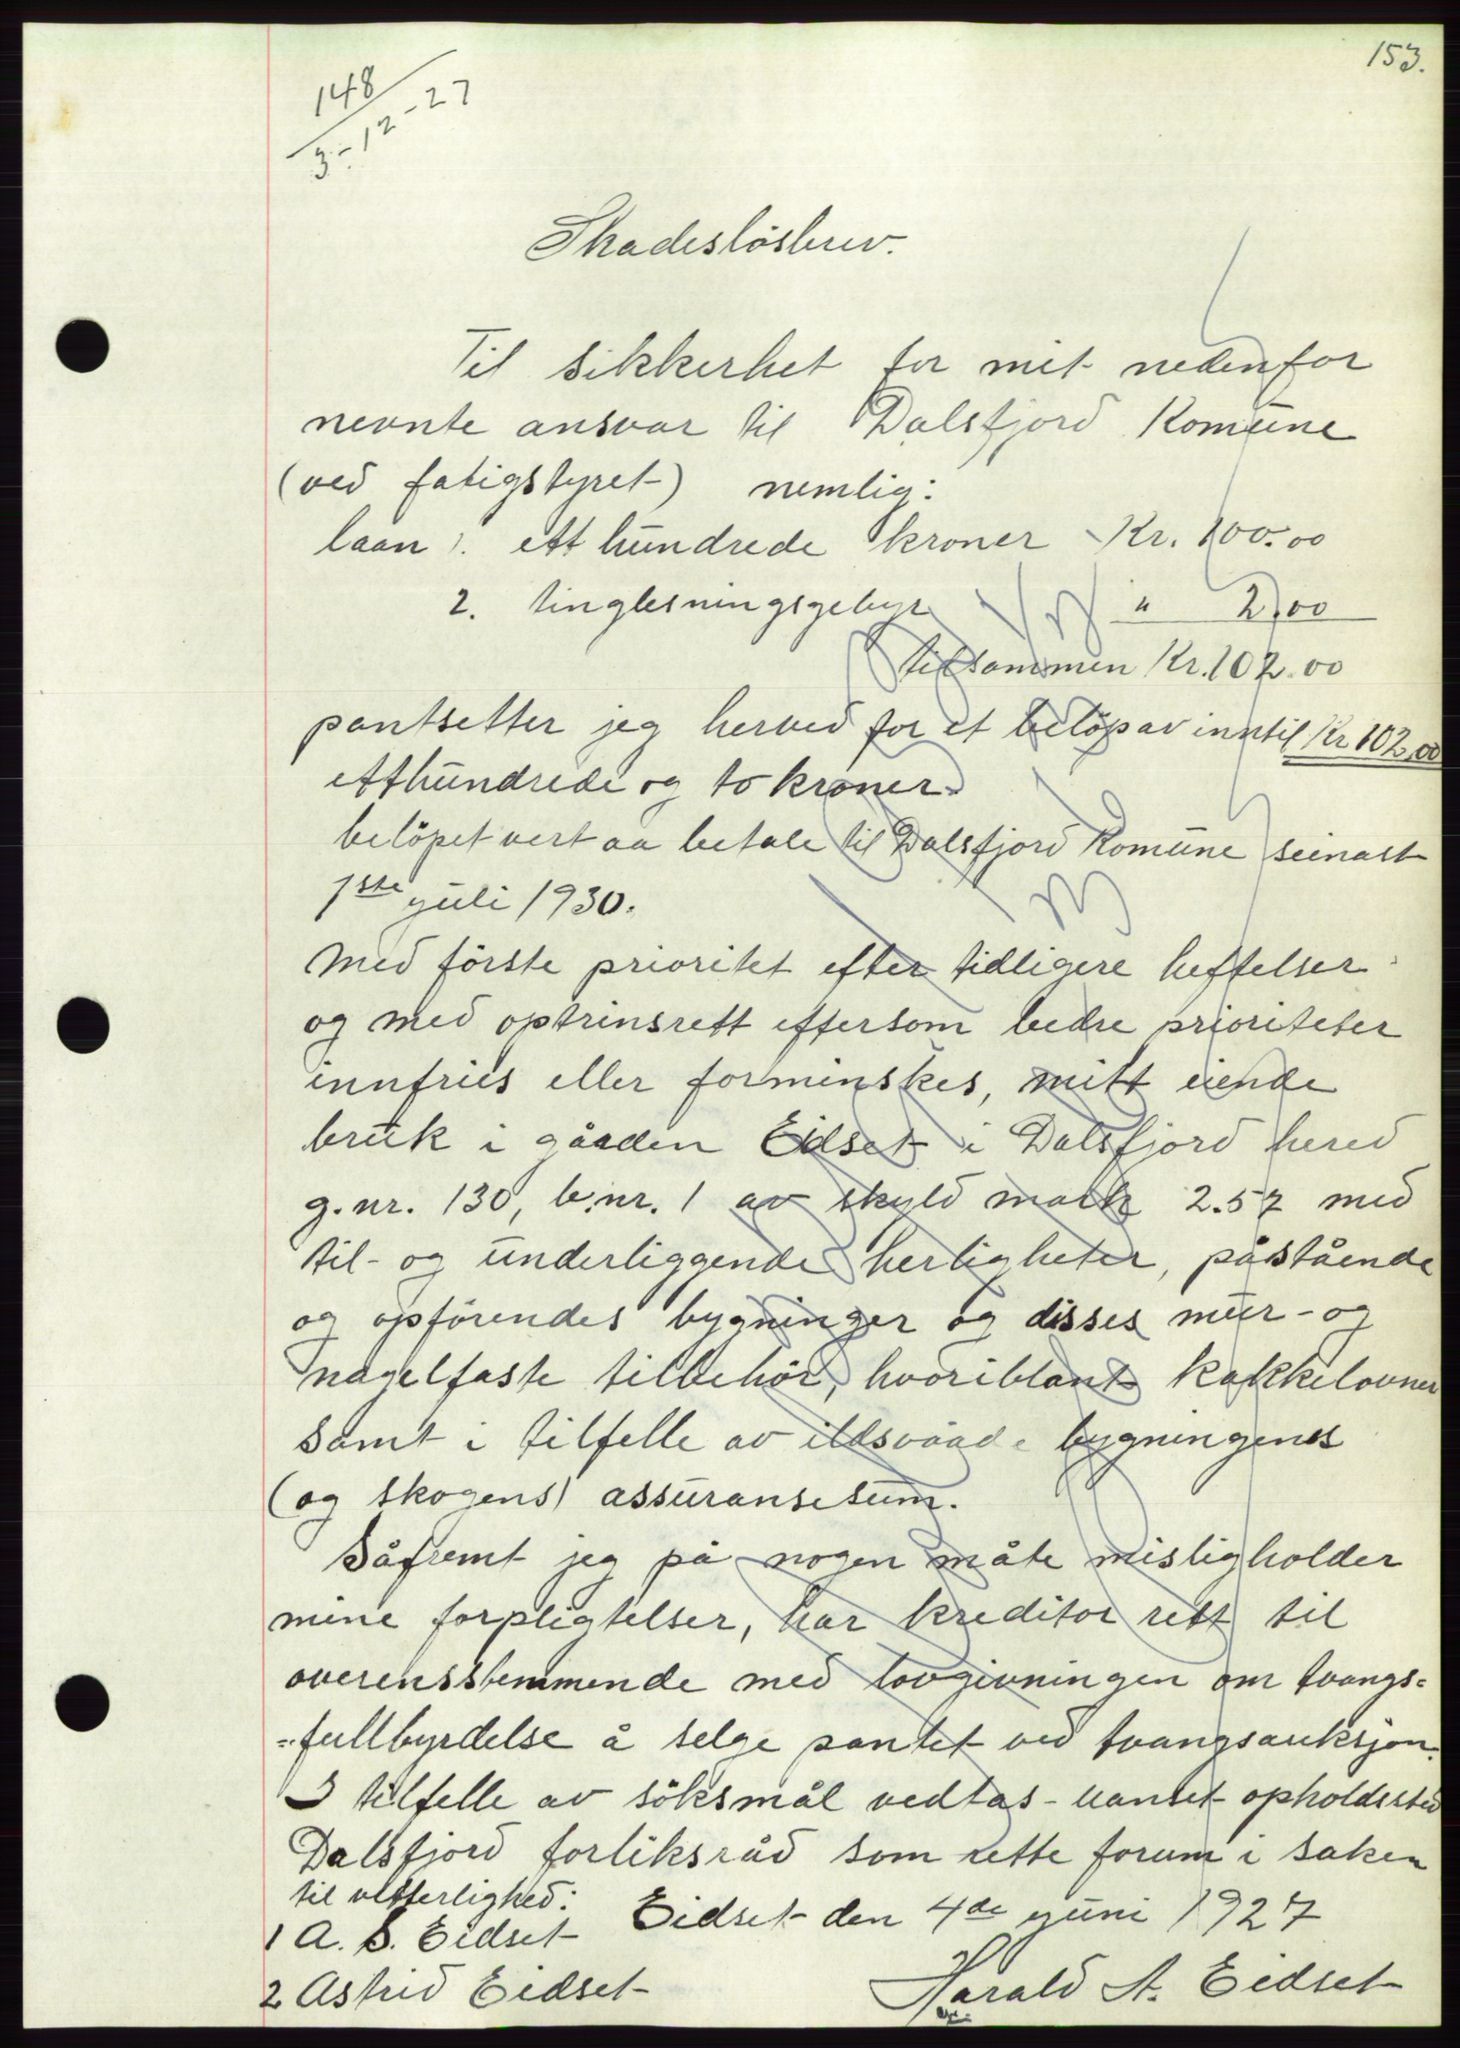 153.
148
3-12-27
Skadesløsbrev.
Til sikkerhet for mit nedenfor
nevnte ansvar til Dalsfjord Komune
(ved fatigstyret) nemlig:
laan 1. ett hundrede kroner Kr. 100.00
2. tinglesningsgebyr " 2.00
tilsammen Kr. 102.00
pantsetter jeg herved for et beløp av inntil Kr 102,00
etthundrede og to kroner.
beløpet vert aa betale til Dalsfjord Komune seinast
1ste juli 1930.
Med første prioritet efter tidligere heftelser
og med optrinsrett eftersom bedre prioriteter
innfries eller forminskes, mitt eiende
bruk i gården Eidset i Dalsfjord hered
g.nr. 130, b.nr. 1 av skyld mark 2.57 med
til- og underliggende herligheter, påstående
og opførendes bygninger og disses mur- og
nagelfaste tilbehør, hvoriblant kakkelovner
samt i tilfelle av ildsvaade bygningenes
(og skogens) assuransesum.
Såfremt jeg på nogen måte misligholder
mine forpligtelser, har kreditor rett til
overensstemmende med lovgivningen om tvangs=
=fullbyrdelse å selge pantet ved tvangsauksjon.
I tilfelle av söksmål vedtas - uanset opholdssted
Dalsfjord forliksråd som rette forum i saken
til vitterlighed: Eidset den 4de juni 1927
1 A. S. Eidset
2 Astrid Eidset Harald A. Eidset